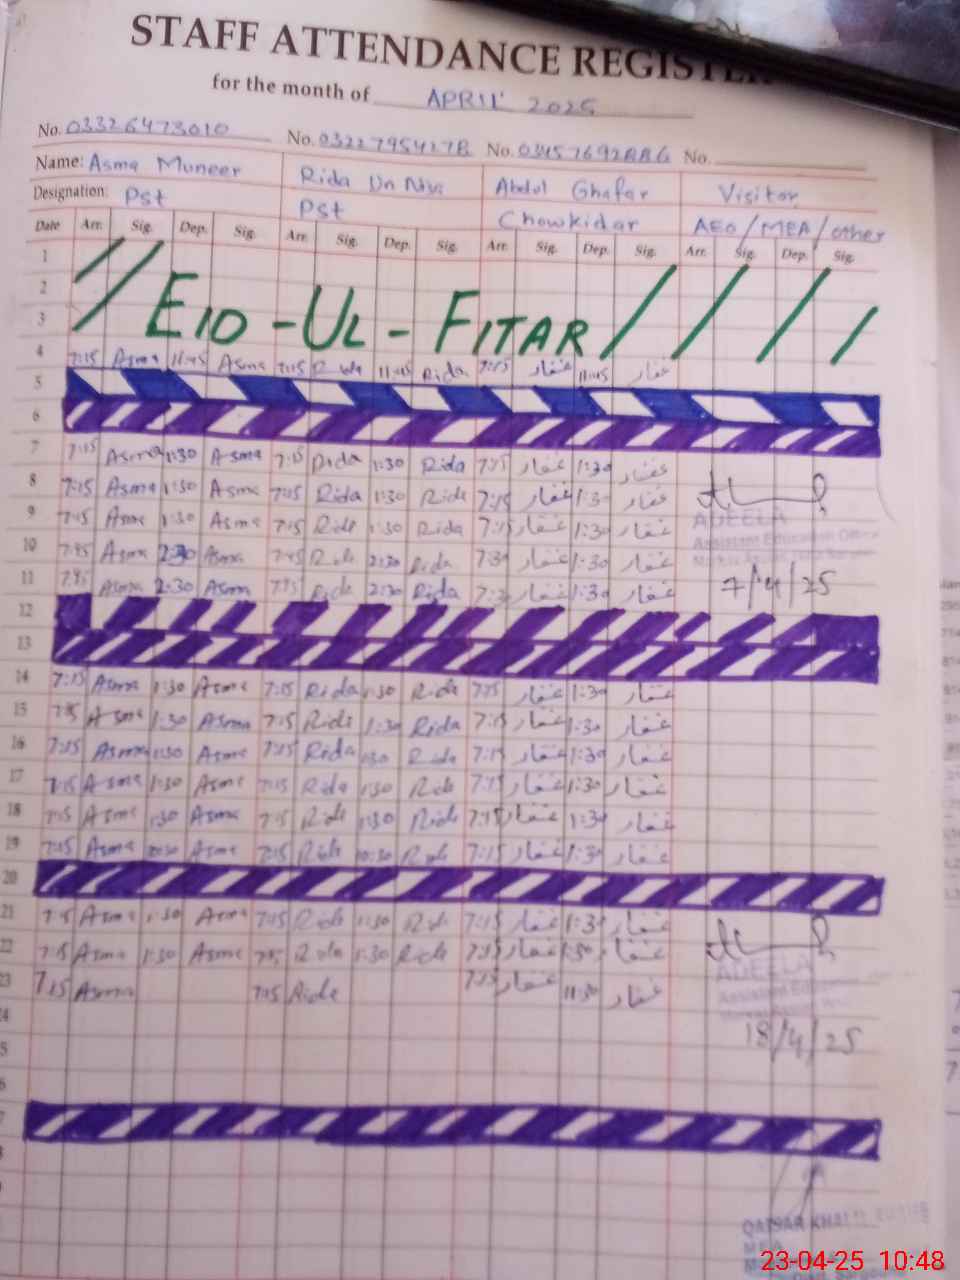 STAFF ATTENDANCE REGISTER
for the month of APRIL 2025
No. 03326473010 No. No. No.
Name: Asma Muneer Rida Un Nisa Abdul Ghafar Visitor
Designation: Pst Pst Chowkidar AEO/MEA/other
Date Arr. Sig. Dep. Sig. Arr. Sig. Dep. Sig. Arr. Sig. Dep. Sig. Arr. Sig. Dep. Sig.
1
2
3 // EID-UL-FITAR ////
4 7:15 Asma 11:45 Asma 7:15 Rida 11:45 Rida 7:15 غفار 11:45 غفار
5
6
7 7:15 Asma 1:30 Asma 7:15 Rida 1:30 Rida 7:15 غفار 1:30 غفار
8 7:15 Asma 1:30 Asma 7:15 Rida 1:30 Rida 7:15 غفار 1:30 غفار
9 7:15 Asma 1:30 Asma 7:15 Rida 1:30 Rida 7:15 غفار 1:30 غفار
ADEELA
Assistant Education Officer
10 7:45 Asma 2:30 Asma 7:45 Rida 2:30 Rida 7:30 غفار 1:30 غفار
11 7:45 Asma 2:30 Asma 7:45 Rida 2:30 Rida غفار 1:30 غفار 7/4/25
12
13
14 7:15 Asma 1:30 Asma 7:15 Rida 1:30 Rida 7:15 غفار 1:30 غفار
15 7:15 Asma 1:30 Asma 7:15 Rida 1:30 Rida 7:15 غفار 1:30 غفار
16 7:15 Asma 1:30 Asma 7:15 Rida 1:30 Rida 7:15 غفار 1:30 غفار
17 7:15 Asma 1:30 Asma 7:15 Rida 1:30 Rida 7:15 غفار 1:30 غفار
18 7:15 Asma 1:30 Asma 7:15 Rida 1:30 Rida 7:15 غفار 1:30 غفار
19 7:15 Asma 10:30 Asma 7:15 Rida 10:30 Rida 7:15 غفار 1:30 غفار
20
21 7:15 Asma 1:30 Asma 7:15 Rida 1:30 Rida 7:15 غفار 1:30 غفار
22 7:15 Asma 1:30 Asma 7:15 Rida 1:30 Rida 7:15 غفار 1:30 غفار
ADEELA
23 7:15 Asma 7:15 Rida 7:15 غفار 11:30 غفار
Assistant
18/4/25
QAISAR
MEA
23-04-25 10:48